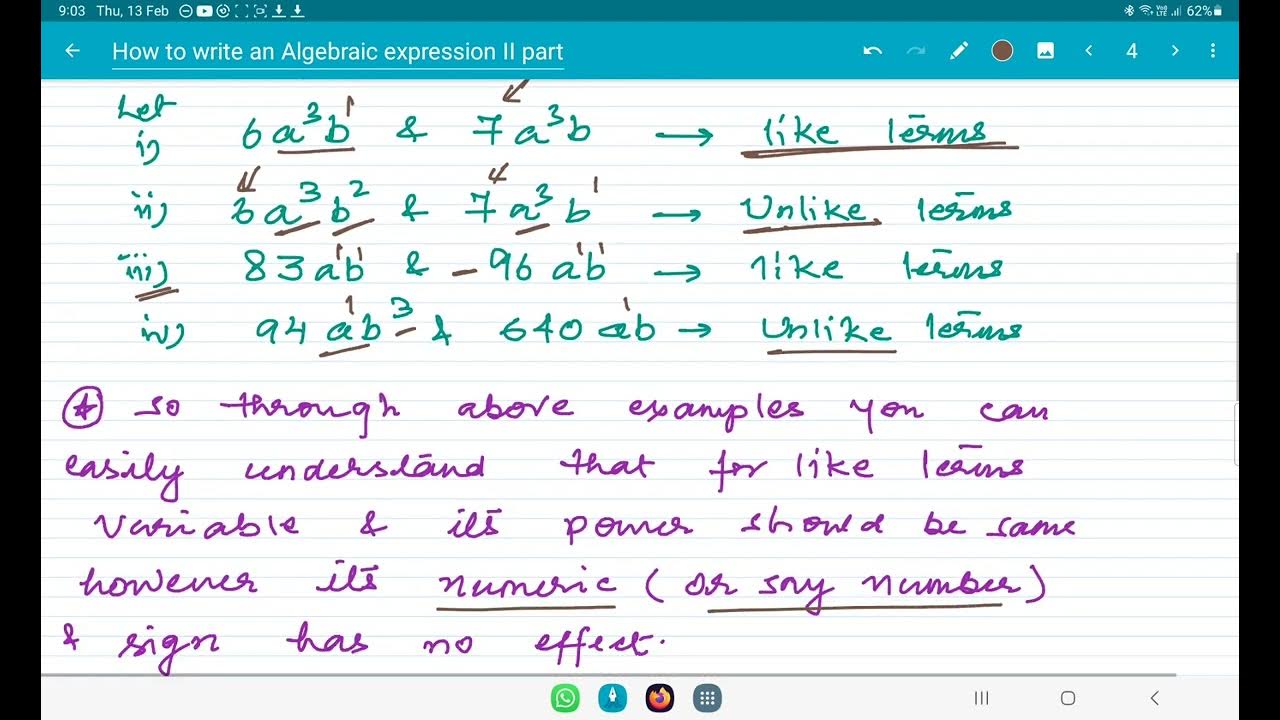 9:03 Thu, 13 Feb 62%
How to write an Algebraic expression II part 4
Let
i) 6a³b¹ & 7a³b → like terms
ii) 6a³b² & 7a³b¹ → Unlike terms
iii) 83a¹b¹ & -96a¹b¹ → like terms
iv) 94a¹b³ & 640ab¹ → Unlike terms
so through above examples you can
easily understand that for like terms
variable & its power should be same
however its numeric (or say number)
& sign has no effect.